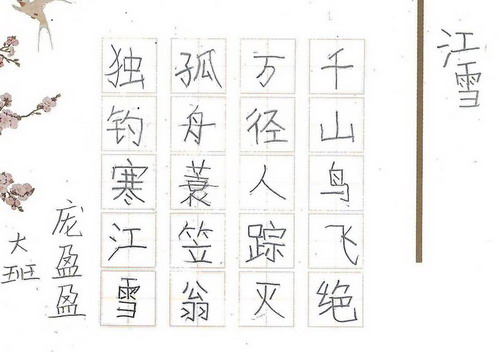 江雪
千山鸟飞绝
万径人踪灭
孤舟蓑笠翁
独钓寒江雪
庞盈盈
大班